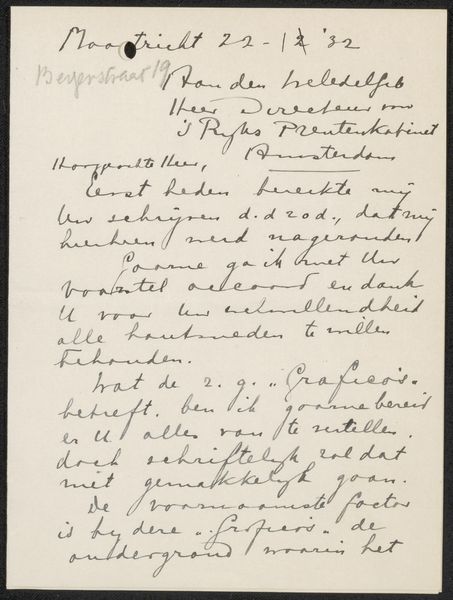 Maastricht 22-12 '32
Beyerstraat 19
Aan den weledelgeb
Heer Directeur van
's Ryks Prentenkabinet
Amsterdam
Hooggeachte Heer,
Eerst heden bereikte mij
Uw schrijven d.d 20 d., dat mij
hierheen werd nagezonden
Gaarne ga ik met Uw
voorstel accoord en dank
U voor Uw welwillendheid
alle houtsneden te willen
behouden.
Wat de z.g. „Grafico's"
betreft, ben ik gaarne bereid
er U alles van te vertellen.
doch schriftelyk zal dat
niet gemakkelyk gaan.
De voornaamste factor
is by dere „Grafico's" de
ondergrond waarin het